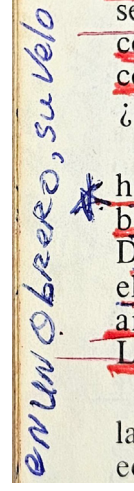 en un Obrero, su velo
se
co
co
¿
h
b
D
el
a
L
la
ec